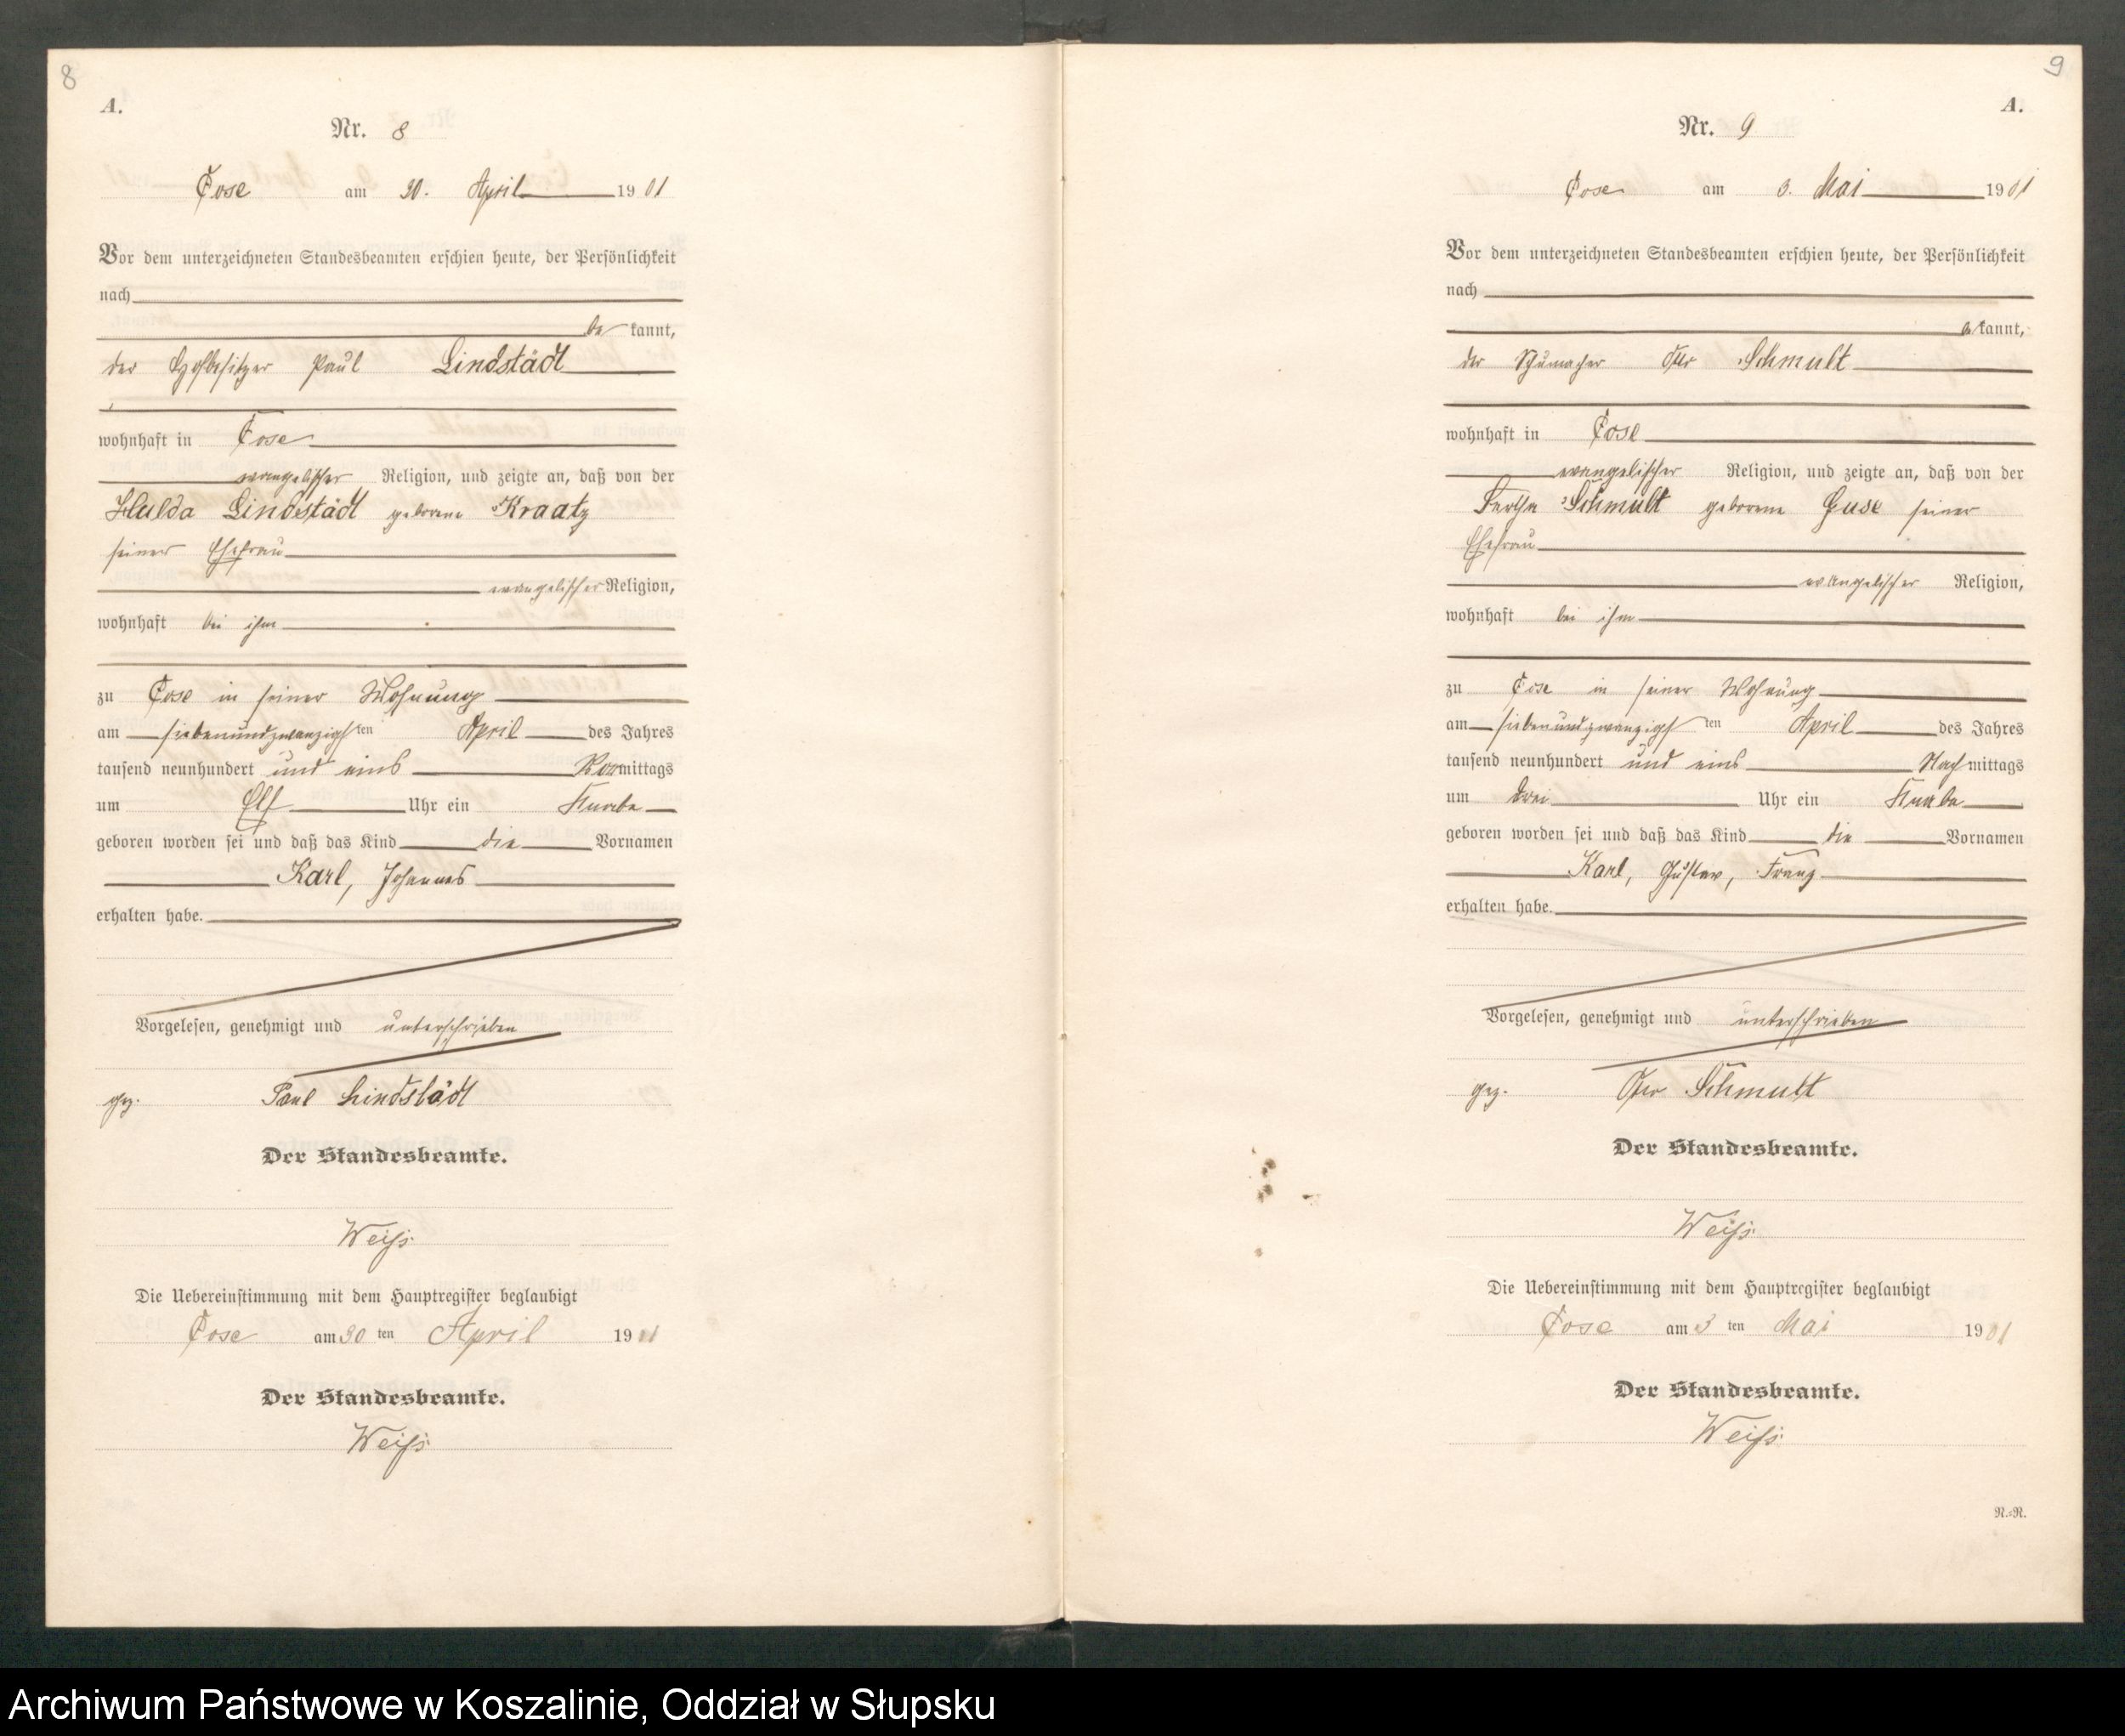 8
A.
Nr. 8
Cose am 30. April 1901
Vor dem unterzeichneten Standesbeamten erschien heute, der Persönlichkeit
nach
be kannt,
der Hofbesitzer Paul Lindstädt
wohnhaft in Cose
evangelischer Religion, und zeigte an, daß von der
Hulda Lindstädt geborene Kraatz
seiner Ehefrau
evangelischer Religion,
wohnhaft bei ihm
zu Cose in seiner Wohnung
am siebenundzwanzigsten April des Jahres
tausend neunhundert und eins Vormittags
um Elf Uhr ein Knabe
geboren worden sei und daß das Kind die Vornamen
Karl, Johannes
erhalten habe.
Vorgelesen, genehmigt und unterschrieben
gez. Paul Lindstädt
Der Standesbeamte.
Weiß
Die Uebereinstimmung mit dem Hauptregister beglaubigt
Cose am 30 ten April 1901
Der Standesbeamte.
Weiß
9
A.
Nr. 9
Cose am 3. Mai 1901
Vor dem unterzeichneten Standesbeamten erschien heute, der Persönlichkeit
nach
kannt,
der Schumacher Otto Schmult
wohnhaft in Cose
evangelischer Religion, und zeigte an, daß von der
Bertha Schmult geborene Guse seiner
Ehefrau
evangelischer Religion,
wohnhaft bei ihm
zu Cose in seiner Wohnung
am siebenundzwanzigsten April des Jahres
tausend neunhundert und eins Nachmittags
um drei Uhr ein Knabe
geboren worden sei und daß das Kind die Vornamen
Karl, Gustav, Franz
erhalten habe.
Vorgelesen, genehmigt und unterschrieben
gez. Otto Schmult
Der Standesbeamte.
Weiß
Die Uebereinstimmung mit dem Hauptregister beglaubigt
Cose am 3 ten Mai 1901
Der Standesbeamte.
Weiß
N.=R.
Archiwum Państwowe w Koszalinie, Oddział w Słupsku